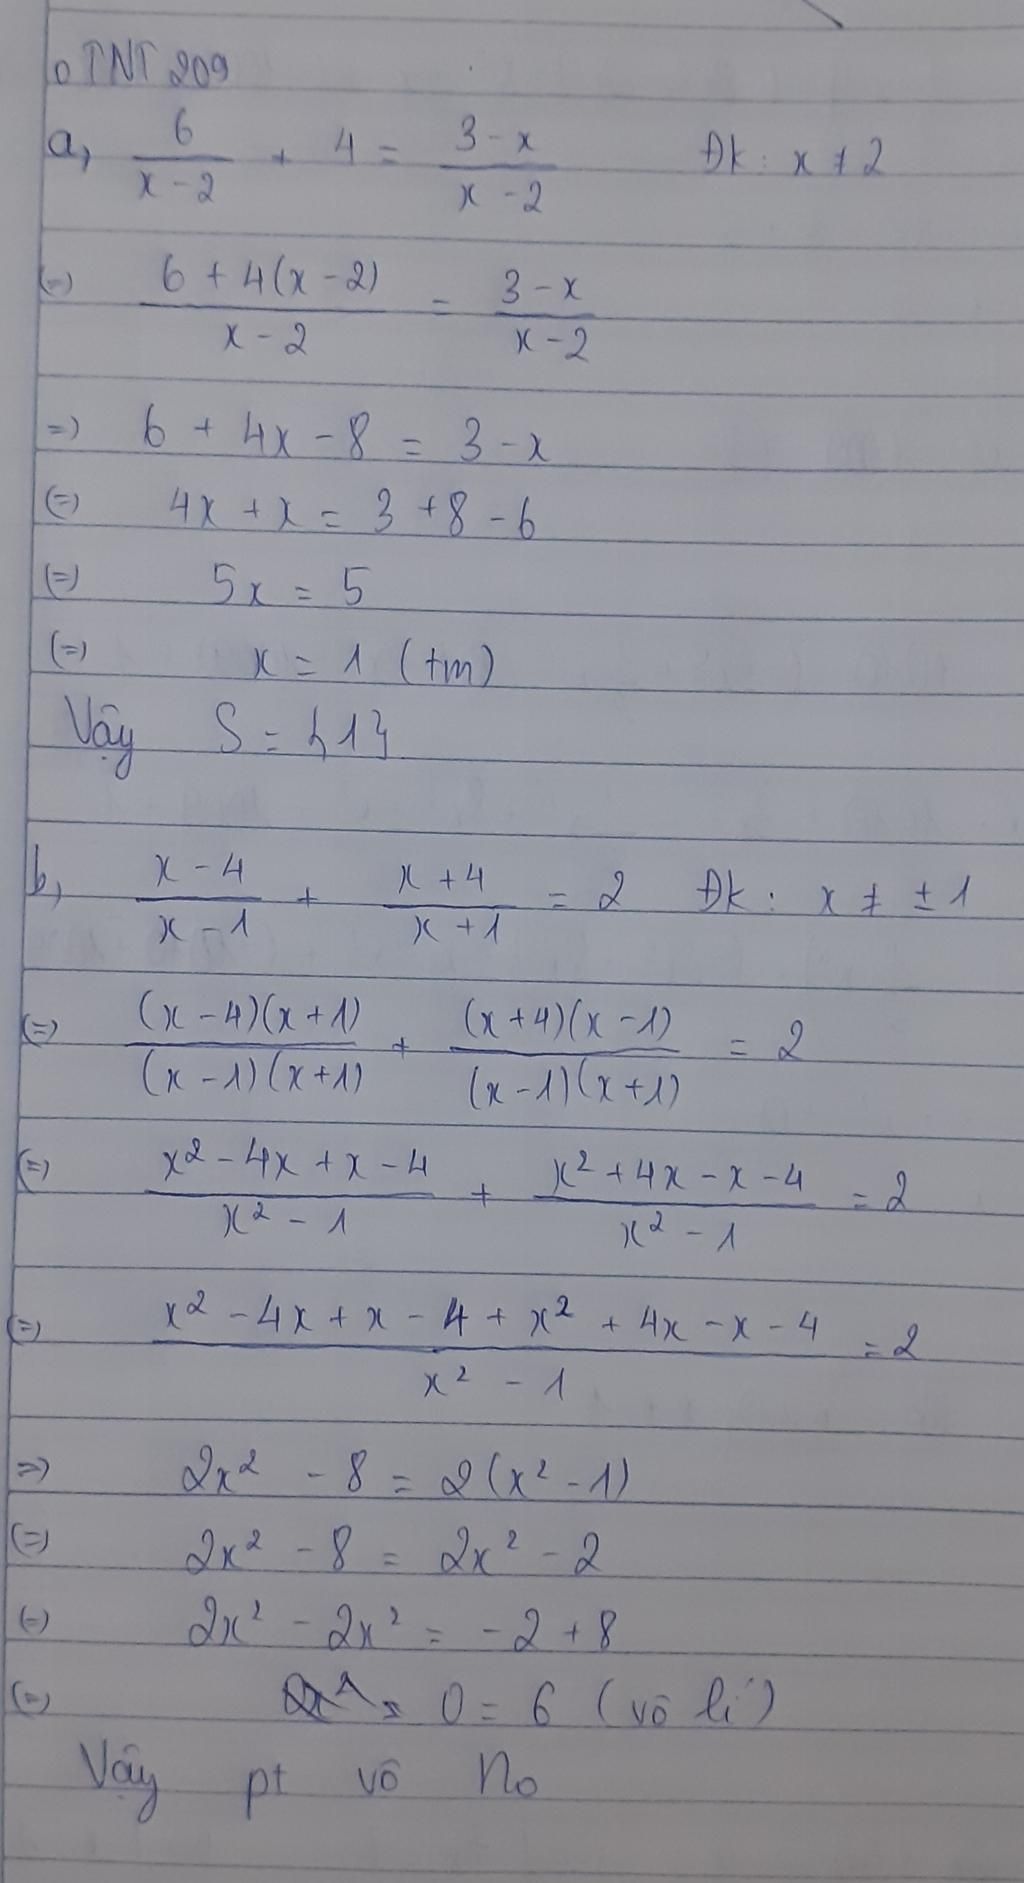 o TNT 209
a, 6/(x - 2) + 4 = (3 - x)/(x - 2) Đk: x ≠ 2
(=) (6 + 4(x - 2))/(x - 2) = (3 - x)/(x - 2)
=) 6 + 4x - 8 = 3 - x
(=) 4x + x = 3 + 8 - 6
(=) 5x = 5
(=) x = 1 (tm)
Vậy S = {1}
b, (x - 4)/(x - 1) + (x + 4)/(x + 1) = 2 Đk: x ≠ ± 1
(=) ((x - 4)(x + 1))/((x - 1)(x + 1)) + ((x + 4)(x - 1))/((x - 1)(x + 1)) = 2
(=) (x² - 4x + x - 4)/(x² - 1) + (x² + 4x - x - 4)/(x² - 1) = 2
(=) (x² - 4x + x - 4 + x² + 4x - x - 4)/(x² - 1) = 2
=) 2x² - 8 = 2(x² - 1)
(=) 2x² - 8 = 2x² - 2
(=) 2x² - 2x² = -2 + 8
(=) 0 = 6 (vô lí)
Vậy pt vô No